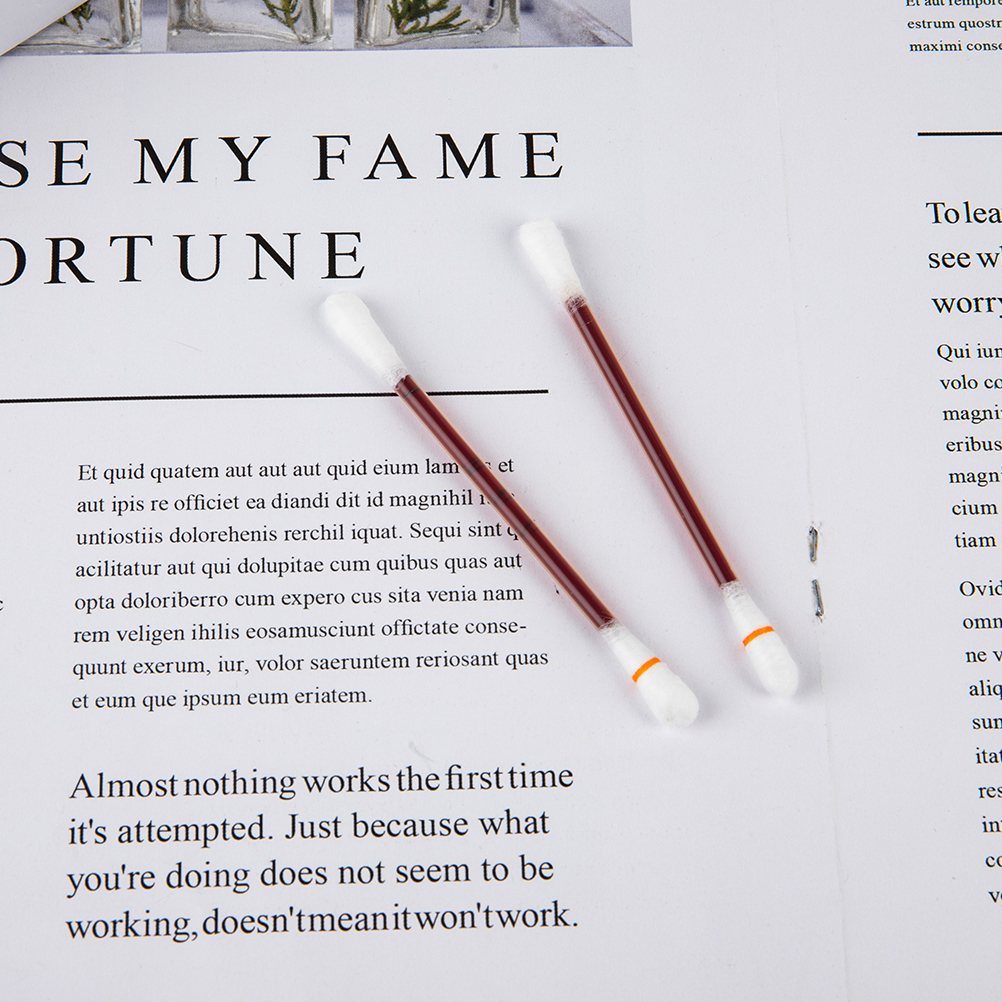 SE MY FAME
ORTUNE
Et quid quatem aut aut aut quid eium lam et
aut ipis re officiet ea diandi dit id magnihil
untiostiis dolorehenis rerchil iquat. Sequi sint
acilitatur aut qui dolupitae cum quibus quas aut
opta doloriberro cum expero cus sita venia nam
rem veligen ihilis eosamusciunt offictate conse-
quunt exerum, iur, volor saeruntem reriosant quas
et eum que ipsum eum eriatem.
Almost nothing works the first time
it's attempted. Just because what
you're doing does not seem to be
working, doesn't mean it won't work.
estrum quostr
maximi conse
To lea
see w
worry
Qui iun
volo co
magni
eribus
magn
cium
tiam
Ovid
omn
ne v
aliq
sun
itat
res
in
co
ve